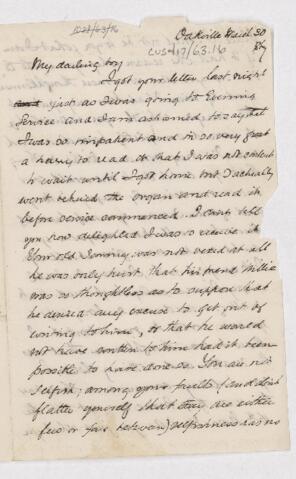 1027/63/16
Oakville March 30
CUST17/63.16
87
My darling boy
I got your letter last night
just as I was going to Evening
Service and I am ashamed to say that
I was so impatient and in so very great
a hurry to read it that I was not content
to wait until I got home but I actually
went behind the organ and read it
before service commenced. I can't tell
you how delighted I was to receive it
Your old Tommy was not vexed at all
he was only hurt that his friend Willie
was so thoughtless as to suppose that
he desired any excuse to get out of
writing to him, or that he would
not have written to him had it been
possible to have done so. You are not
selfish; among your faults (and don't
flatter yourself that they are either
few or far between) selfishness has no